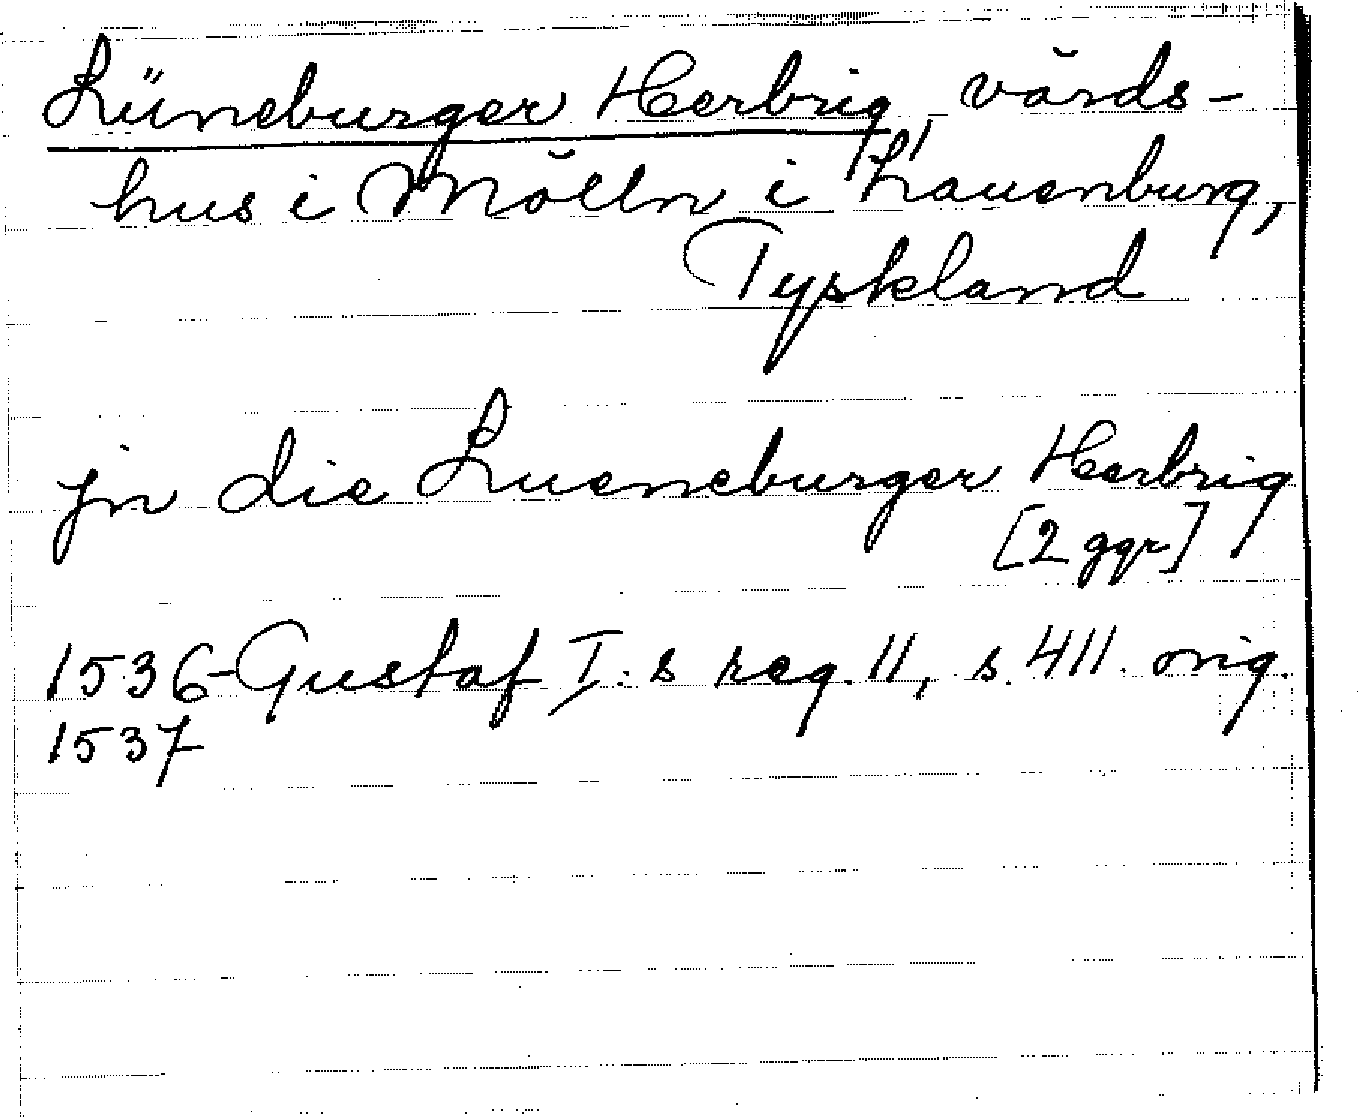 Lüneburger Herbrig, värds-
hus i Mölln i Lauenburg,
Tyskland
jn die Lueneburger Herbrig
[2 ggr]
1536- Gustaf I:s reg. 11, s. 411. orig.
1537